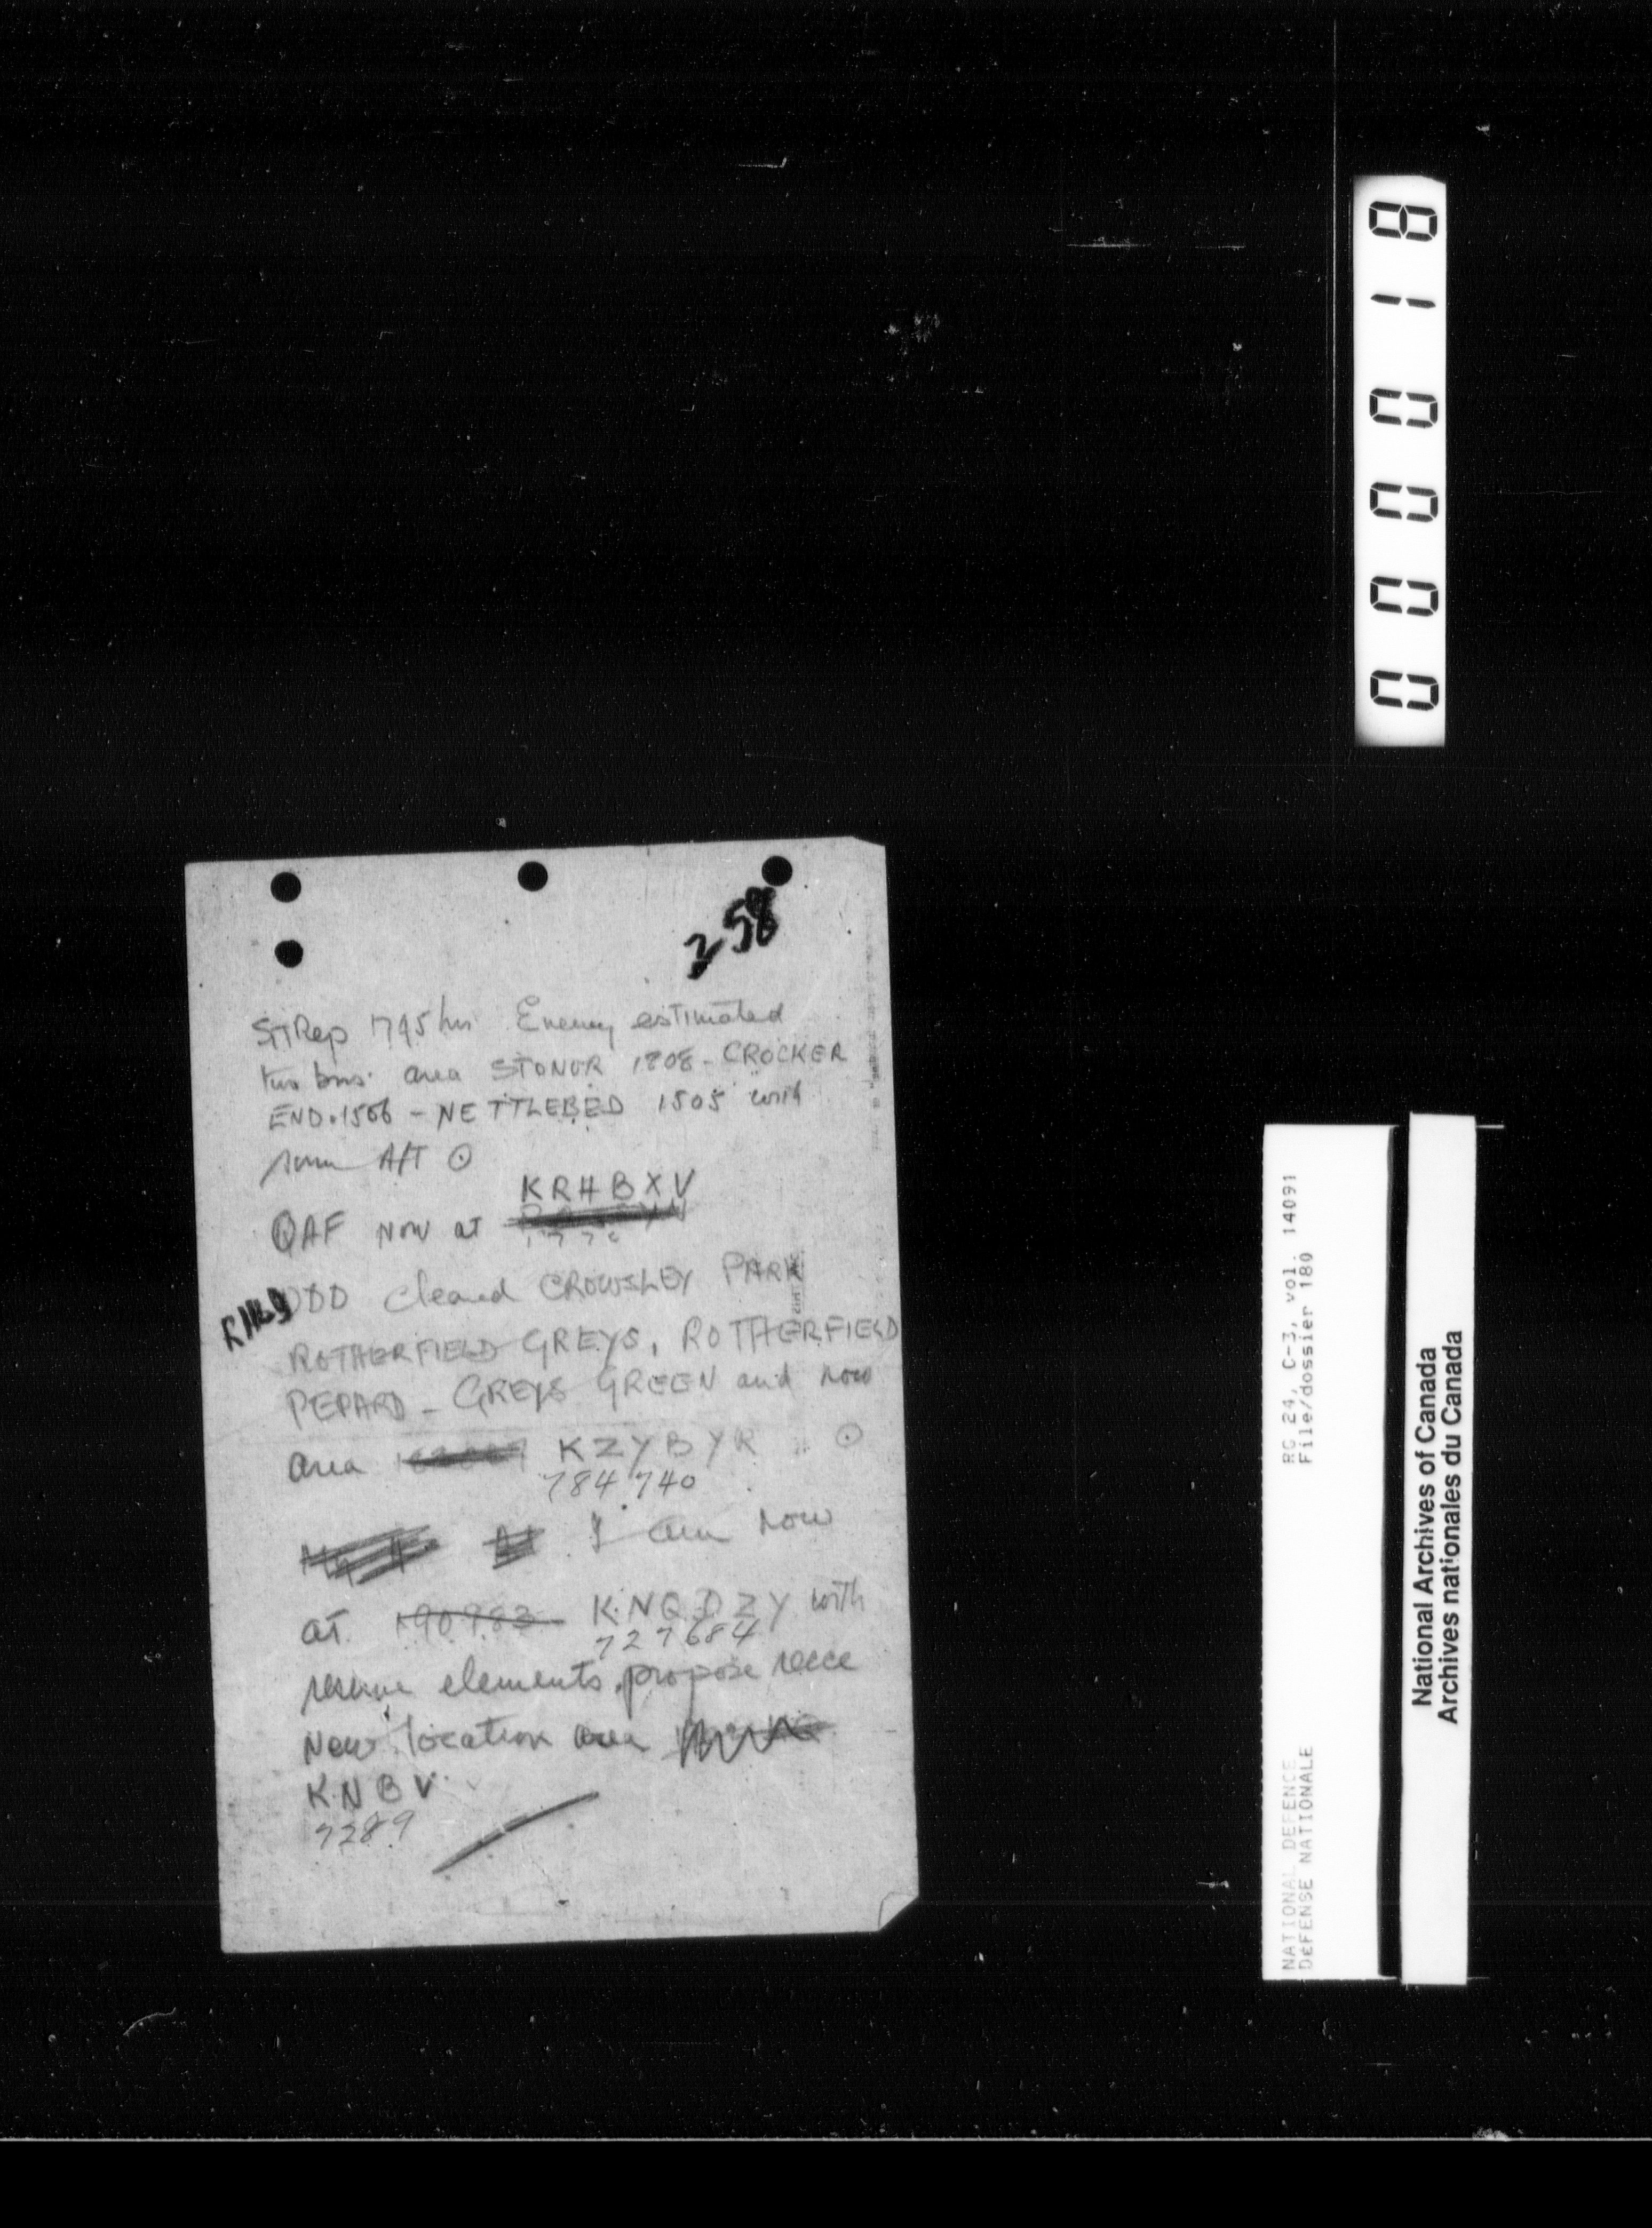 258
SITRep 1745 hrs Enemy estimated
two bns. area STONOR 1808 - CROCKER
END. 1506 - NETTLEBED 1505 with
some A/T ⊙
KRHBXV
QAF now at
DDD cleared CROWSLEY PARK
ROTHERFIELD GREYS, ROTHERFIELD
PEPARD - GREYS GREEN and now
area KZYBYR ⊙
784740
I am now
at 190983 KNQDZY with
727684
reserve elements, propose recce
New location area
KNBV.
7289
000018
RG 24, C-3, vol. 14091
File/dossier 180
NATIONAL DEFENCE
DÉFENSE NATIONALE
National Archives of Canada
Archives nationales du Canada